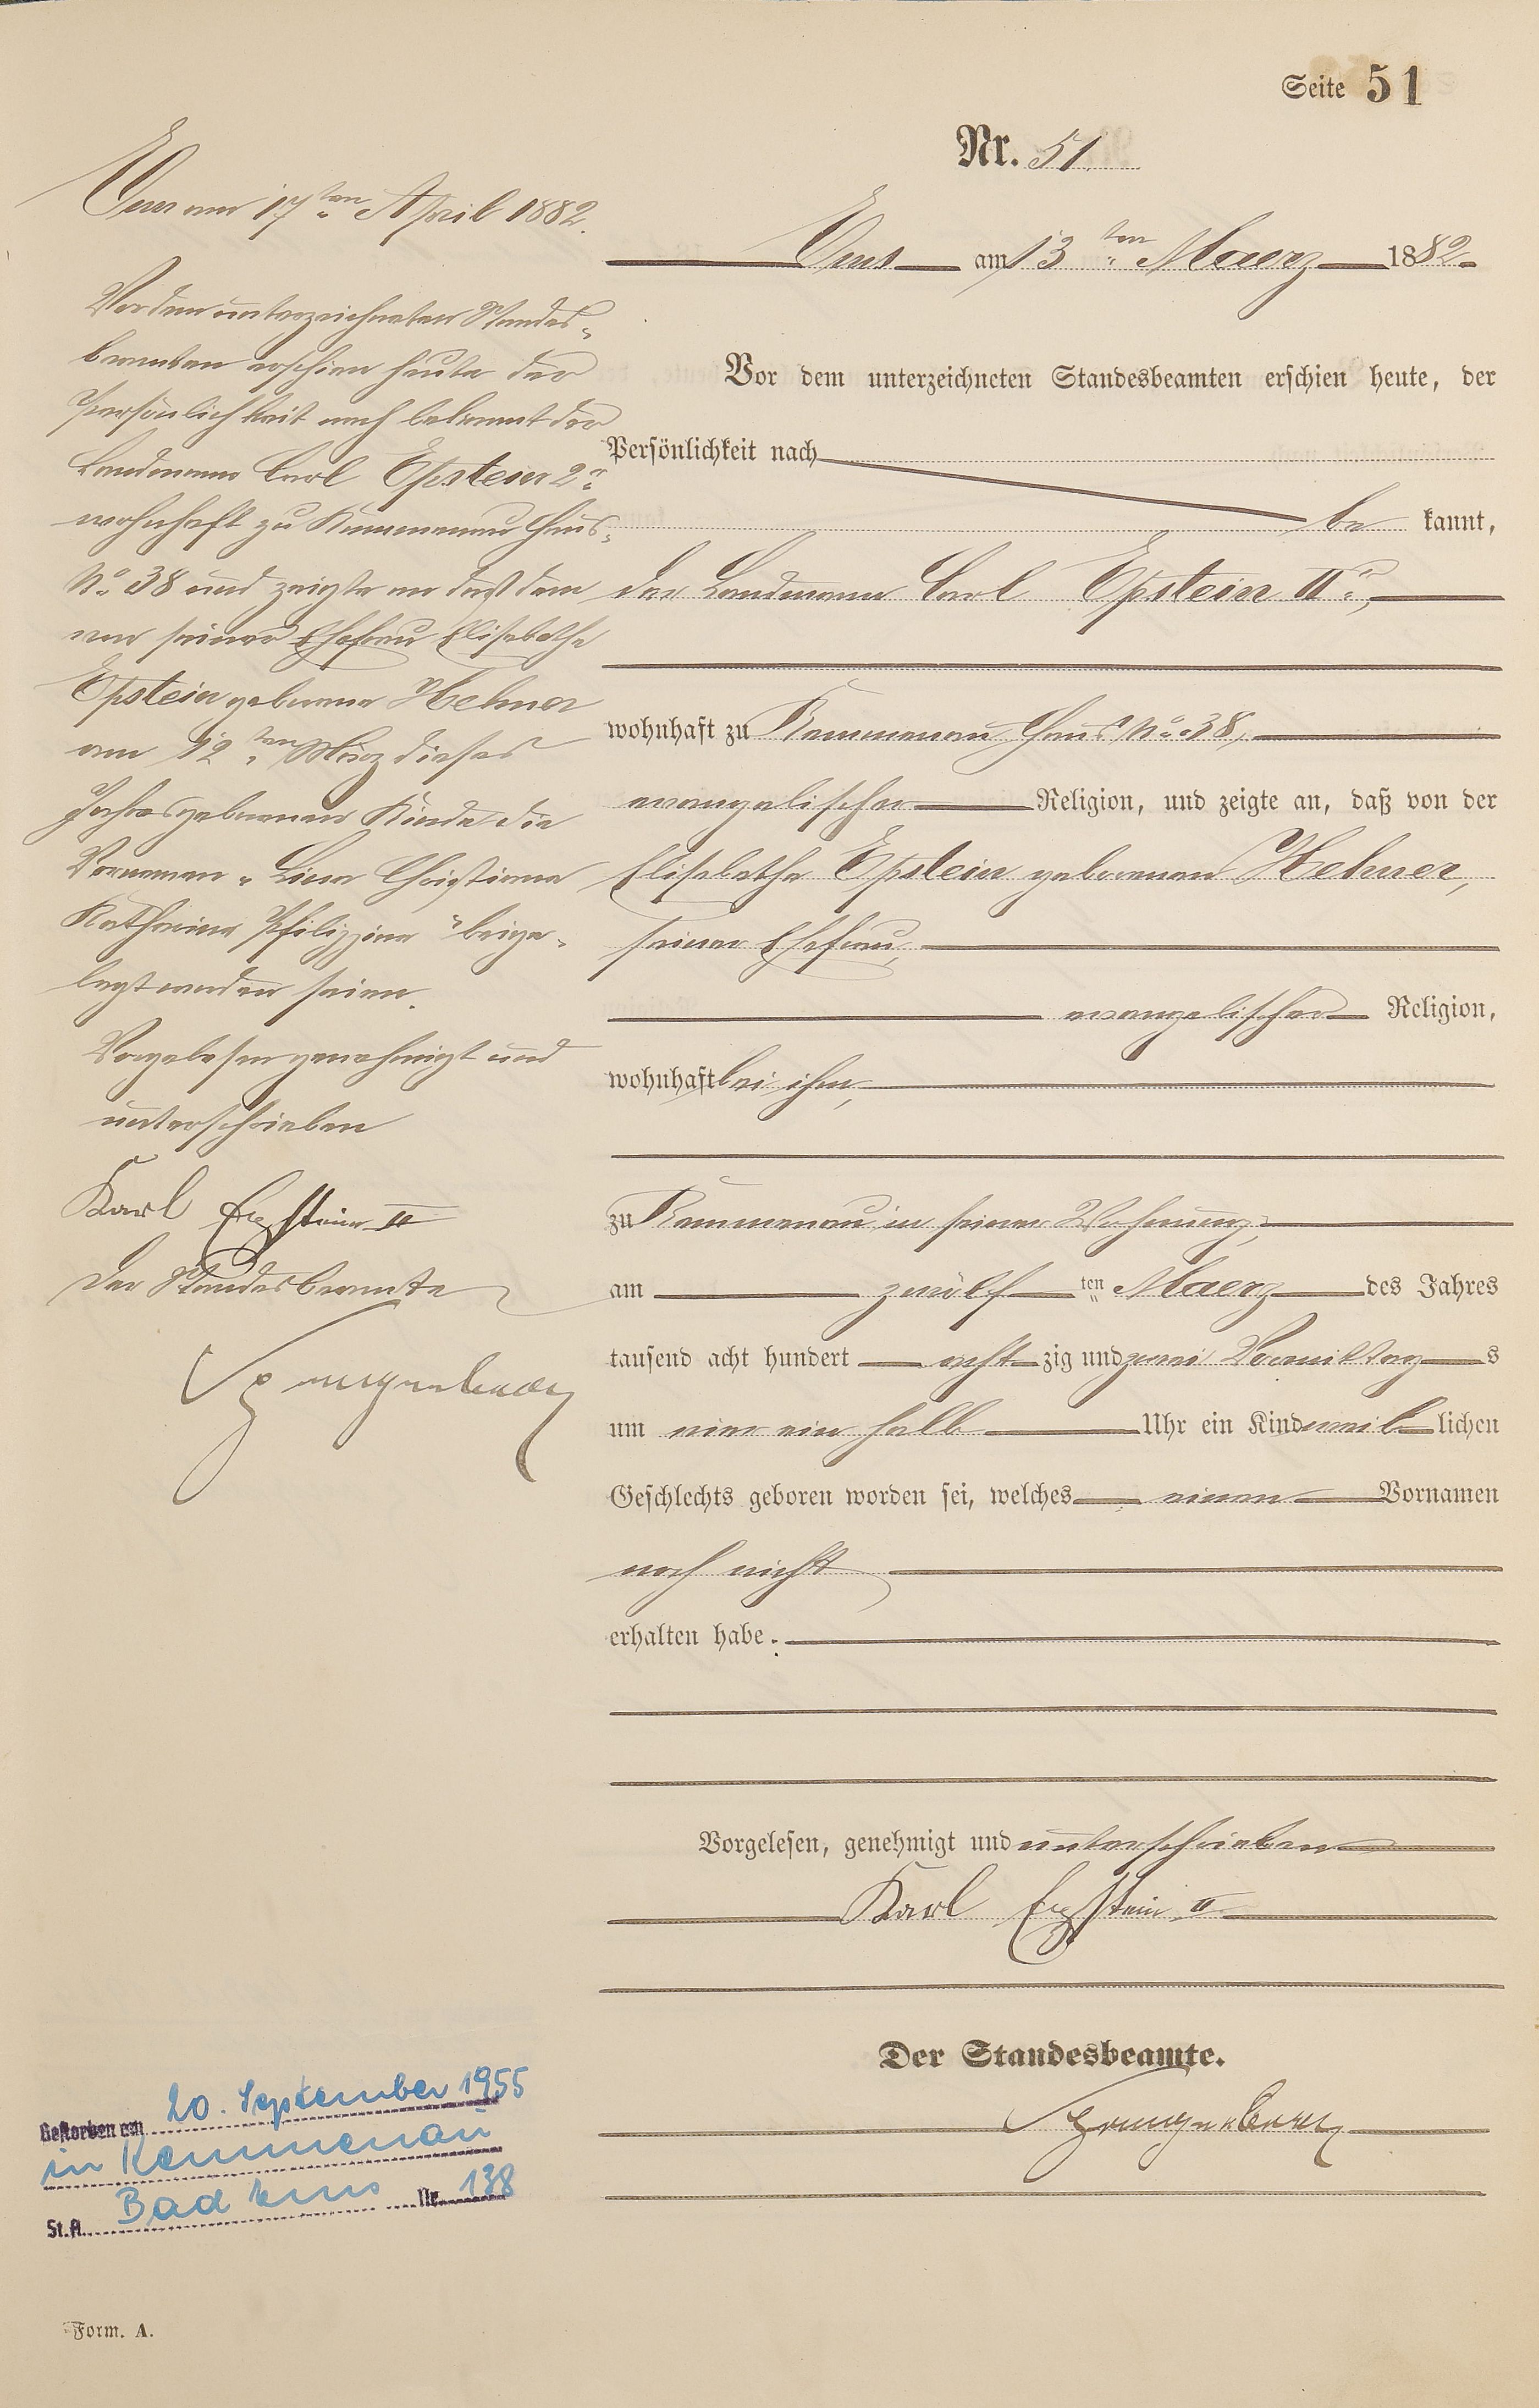 Seite 51
Nr. 51
Ems am 13ten Maerz 1882
Vor dem unterzeichneten Standesbeamten erschien heute, der
Persönlichkeit nach
be kannt,
der Landmann Carl Epstein IIr,
wohnhaft zu Kemmenau Haus No 38,
evangelischer Religion, und zeigte an, daß von der
Elisabethe Epstein geborenen Hehner,
seiner Ehefrau,
evangelischer Religion,
wohnhaft bei ihm,
zu Kemmenau in seiner Wohnung,
am zwölf ten Maerz des Jahres
tausend acht hundert acht zig und zwei Vormittag s
um vier ein halb Uhr ein Kind weib lichen
Geschlechts geboren worden sei, welches einen Vornamen
noch nicht
erhalten habe.
Vorgelesen, genehmigt und unterschrieben
Karl Epstein II
Der Standesbeamte.
Ems am 17ten April 1882.
Vor dem unterzeichneten Standes-
beamten erschien heute der
Persönlichkeit nach bekannt der
Landmann Carl Epstein 2r
wohnhaft zu Kemmenau Haus-
No 38 und zeigte an daß dem
von seiner Ehefrau Elisabethe
Epstein geborene Hehner
am 12ten März dieses
Jahres geborenen Kinde die
Vornamen „Lina Christiane
Katharine Philippine" beige-
legt worden seien.
Vorgelesen genehmigt und
unterschrieben
Karl Epstein II
Der Standesbeamte
Gestorben am 20. September 1955
in Kemmenau
St.A. Bad Ems Nr. 138
Form. A.